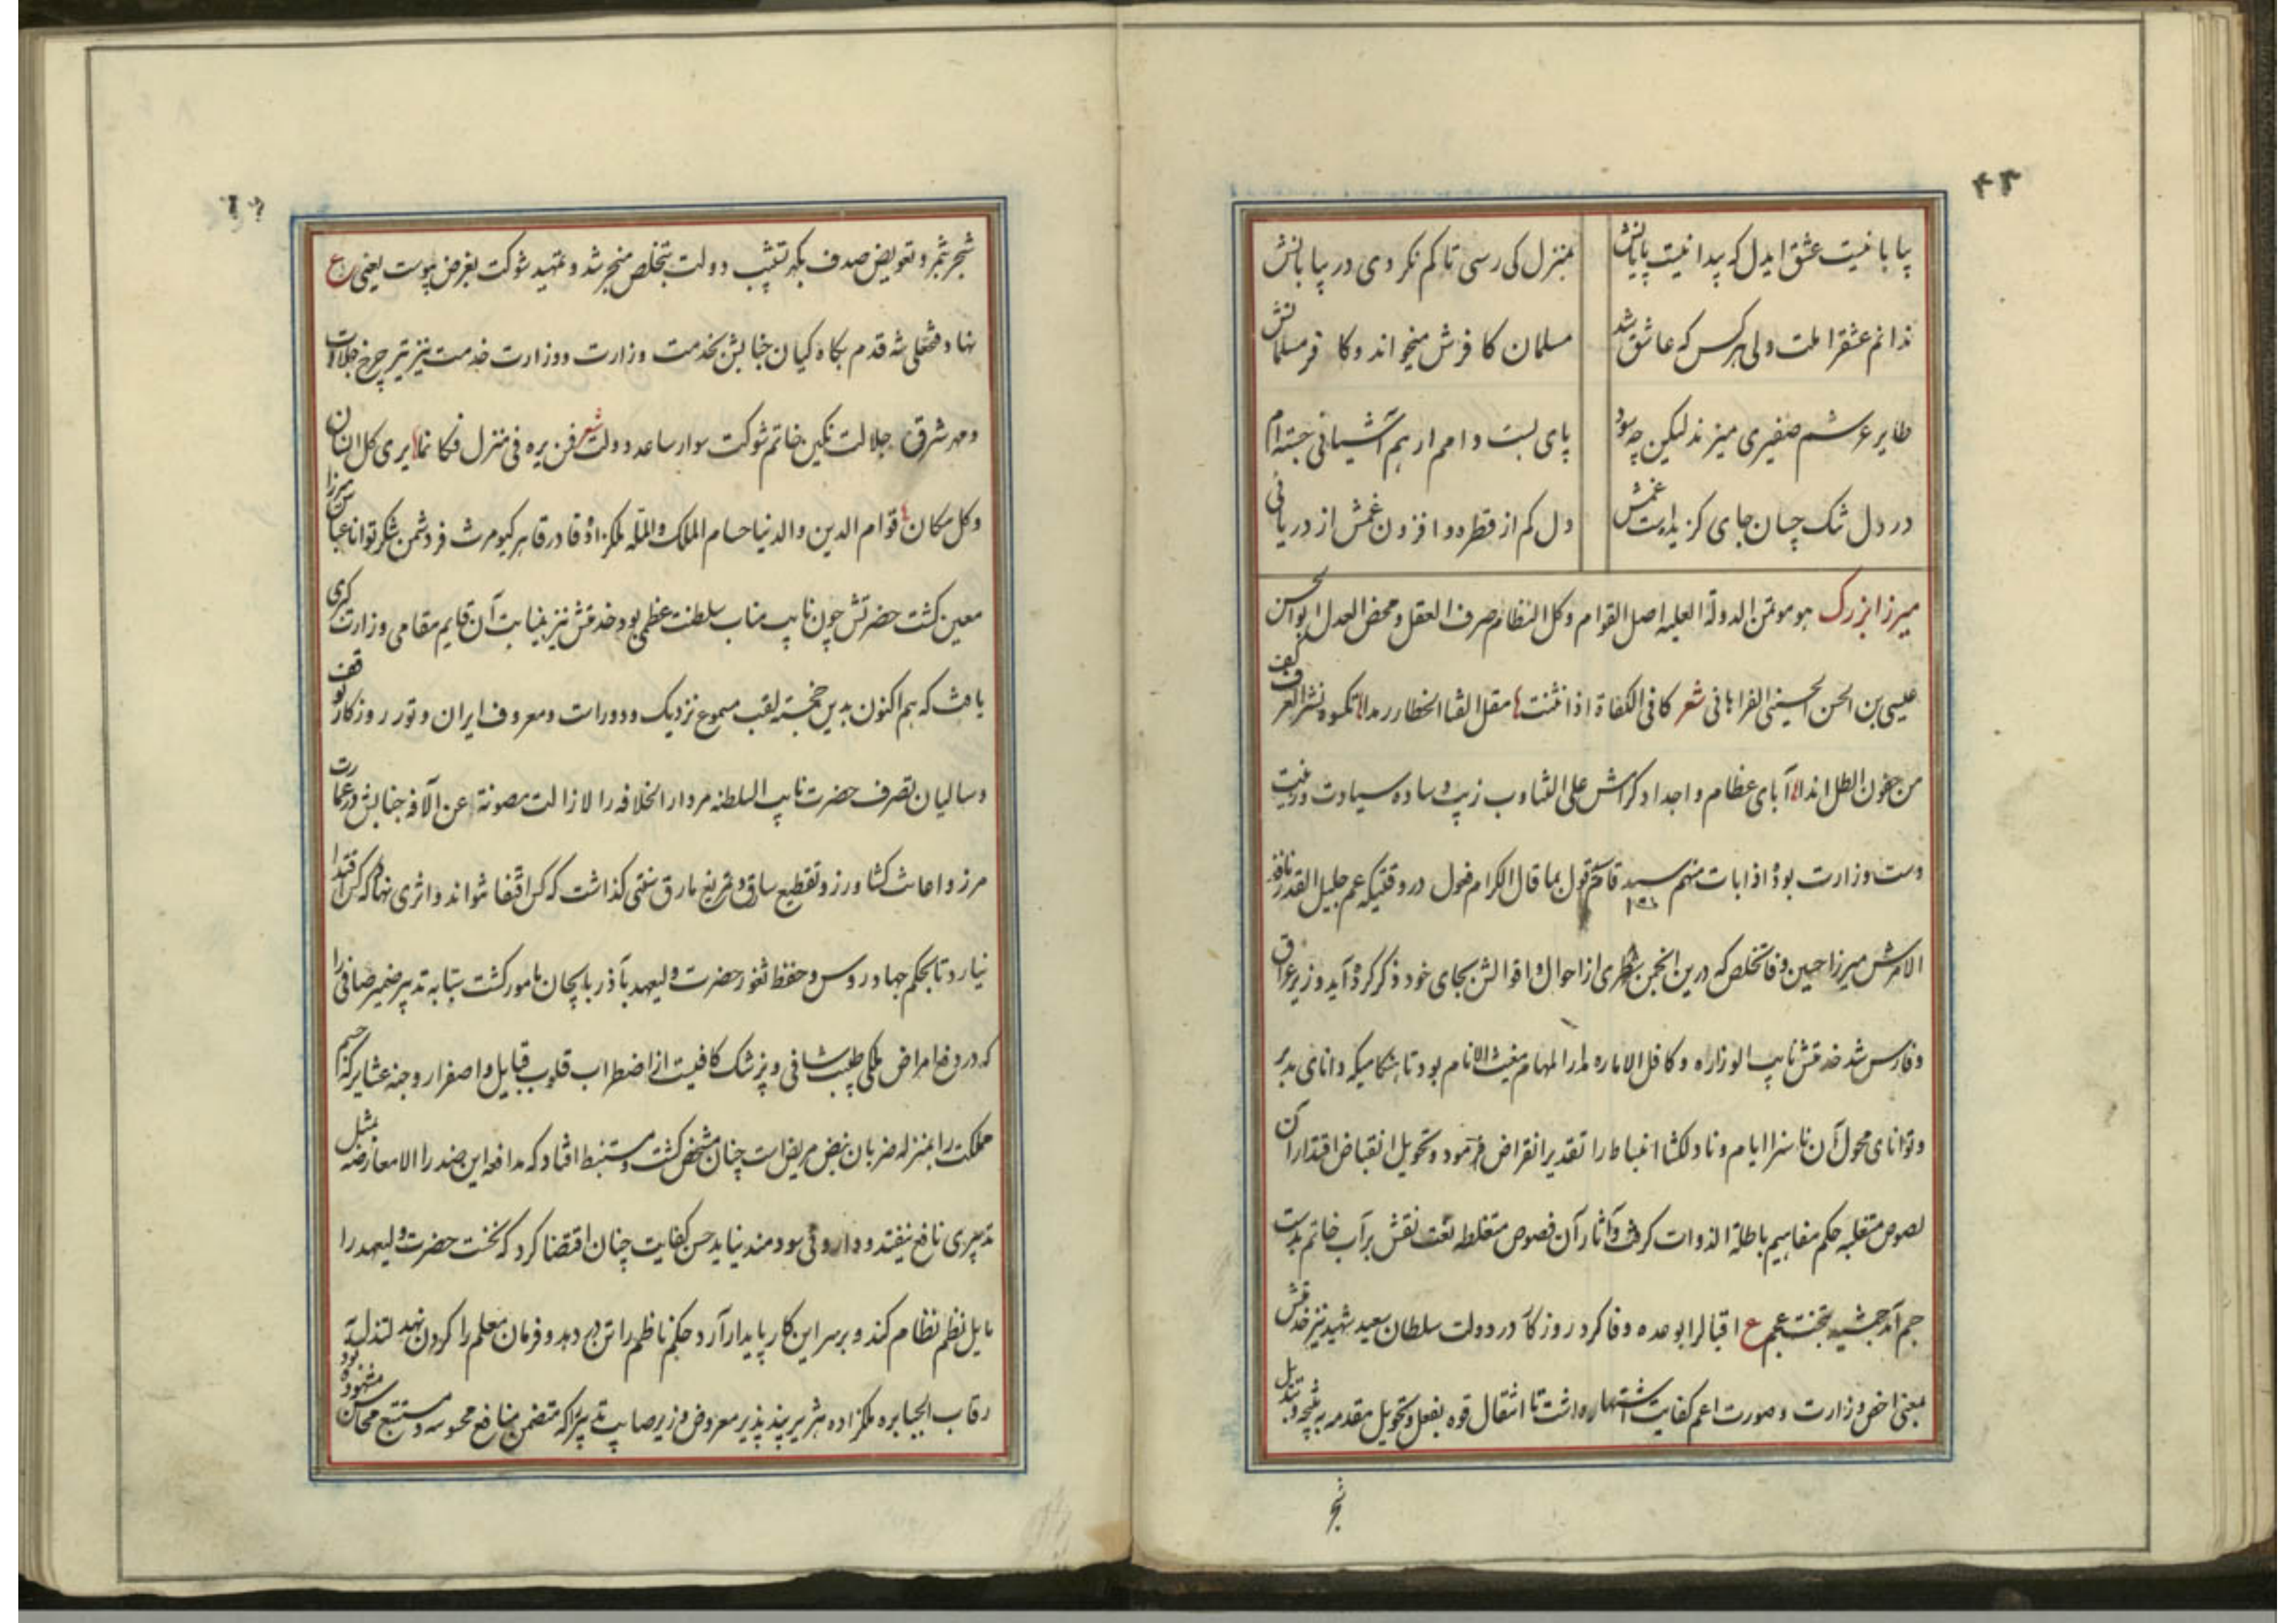 ۴۳
بیابانیست عشق ایدل که پیدا نیست پایانش
بمنزل کی رسی تا کم نکردی در بیابانش
ندانم عشقرا ملت ولی هرکس که عاشق شد
مسلمان کافرش میخواند و کافر مسلمانش
طایر عرشم صفیری میزند لیکن چه سود
پای بست دامم ار هم آشیانی جسته‌ام
در دل تنک چسان جای کزیدست غمش
دل کم از قطره و افزون غمش از دریائی
میرزا بزرک هو موتمن الدولة العلیه اصل القوام و کل النظام صرف العقل و محض العدل ابوالحسن
عیسی بن الحسن الحسینی الفراهانی شعر کافی الکفاة اذا انثنت مقل القنا الخطار رمدا تکسوه نثر العرف کف
من جفون الطل اندا آبای عظام و اجداد کرامش علی التناوب زیب وساده سیادت و زینت
دست وزارت بود اذا بات منهم سید قام قول بما قال الکرام فعول در وقتیکه عم جلیل القدر نافذ
الامرش میرزا حسین وفا تخلص که درین انجمن شطری از احوال و اقوالش بجای خود ذکر کرده آید وزیر عراق
و فارس شد خدمتش نایب الوزاره و کافل الاماره مدار المهام مغیث الانام بود تا هنکامیکه دانای مدبر
و توانای محول آن ناسزا ایام و نادلکشا انبساط را تقدیر انقراض فرمود و تحویل انقباض اقتدار آن
لصوص متغلبه حکم مفاهیم باطلة الذوات کرفت و آثار آن فصوص متغلطه نعت نقش بر آب خاتم بدست
جم آمد جمشید بتخت عجم ع اقبال را بوعده وفا کرد روزکار در دولت سلطان سعید شهید نیز خدمتش
بمعنی اخص وزارت و صورت اعم کفایت اشتهار داشت تا انتقال قوه بفعل و تحویل مقدمه بنتیجه و تبدیل
شجر
شجر بثمر و تعویض صدف بکهر تشبیب دولت بتخلص منجر شد و تمهید شوکت بغرض پیوست یعنی ع
نهاد فتحعلی شه قدم بکاه کیان جنابش بخدمت وزارت و وزارت خدمت نیز تیر چرخ جلالت
و مهر شرق جلالت نکین خاتم شوکت سوار ساعد دولت شعر فمن یره فی منزل فکانما یری کل انسان
و کل مکان قوام الدین و الدنیا حسام الملک والمله ملکزاده قادر قاهر کیومرث فر دشمن شکر توانا عباس میرزا
معین کشت حضرتش چون نایب مناب سلطنت عظمی بود خدمتش نیز بنیابت آن قایم مقامی وزارت کبری
یافت که هم اکنون بدین خجسته لقب مسموع نزدیک و دور است و معروف ایران و تور روزکار
و سالیان تصرف حضرت نایب السلطنه مر دار الخلافه را لازالت مصونة عن الآفه جنابش در عمارت
مرز و اعانت کشاورز و تقطیع سارق و تمزیق مارق سنتی کذاشت که کس اقتفا نتواند و اثری نهاد که کس اقتدا
نیارد تا بحکم جهاد روس و حفظ ثغور حضرت ولیعهد بآذربایجان مامور کشت بتابه تدبیر ضمیر صافی را
که در دفع امراض ملکی طبیب شافی و پزشک کافیست از اضطراب قلوب قبایل و اصفرار وجنه عشایر که جسم
مملکت را بمنزله ضربان نبض مریض است چنان مشخص کشت و مستنبط افتاد که مدافعه این ضد را الا معارضه بمثل
تدبیری نافع نیفتد و داروئی سودمند نیاید حسن کفایت چنان اقتضا کرد که نخست حضرت ولیعهد را
مایل نظم نظام کند و بر سر این کار پایدار آرد حکیم ناظم را تن در دهد و فرمان معلم را کردن نهد لتذلیله
رقاب الجبابره ملکزاده هژبر پند پذیر معروض وزیر صایب تدبیر را که متضمن منافع محسوسه و مستتبع محاسن مشهوده بود